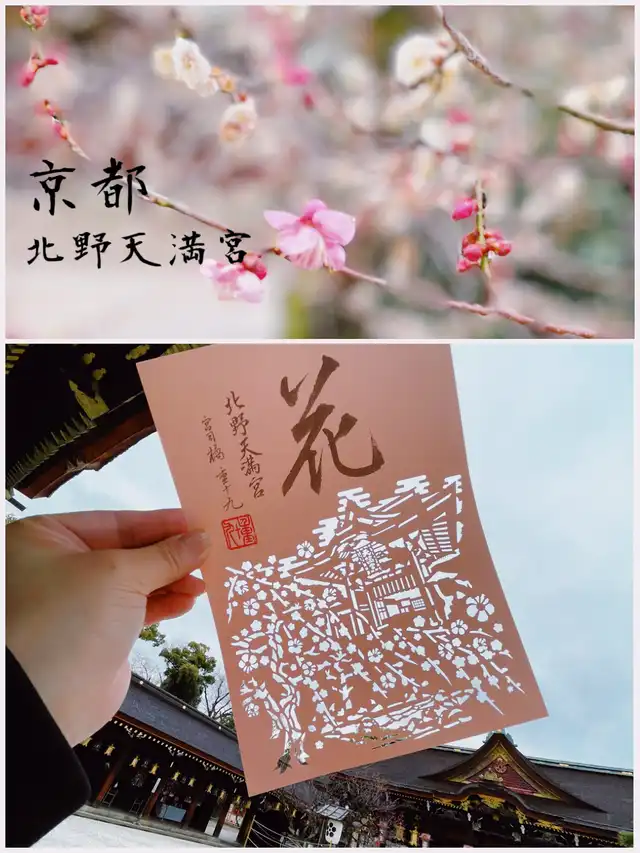 京都
北野天満宮
花
北野天満宮
宮司橘重十九